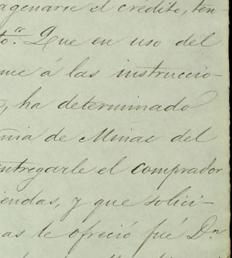 agenarse el crédito, ten
to." Que en uso del
me á las instruccio-
, ha determinado
ñia de Minas del
entregarle el comprador
iendas, y que solici-
as le ofreció fué Dn